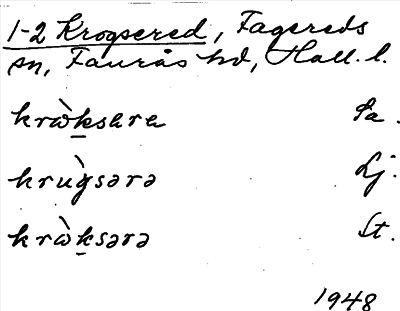 1-2 Krogsered, Fagereds
sn, Faurås hd, Hall. l.
krὼk̲sara Sa.
krùgsərə Lj.
krὼk̲sərə St.
1948